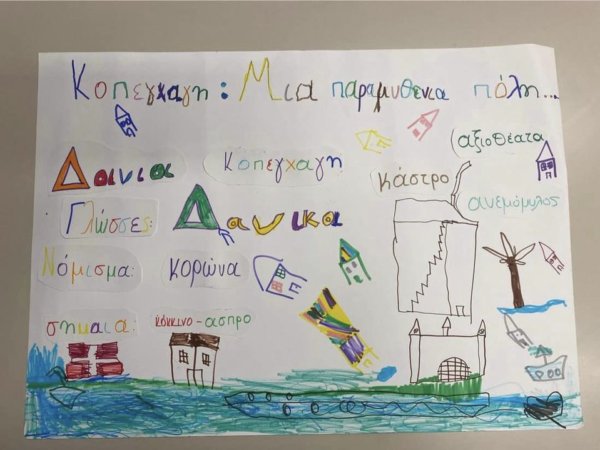 Κοπεγχαγη: Μια παραμυθενια πόλη...
Δανια
κοπεγχαγη
κάστρο
αξιοθέατα
ανεμόμυλος
Γλώσσες:
Δανικα
Νόμισμα:
κορώνα
σημαια:
κόκκινο-άσπρο